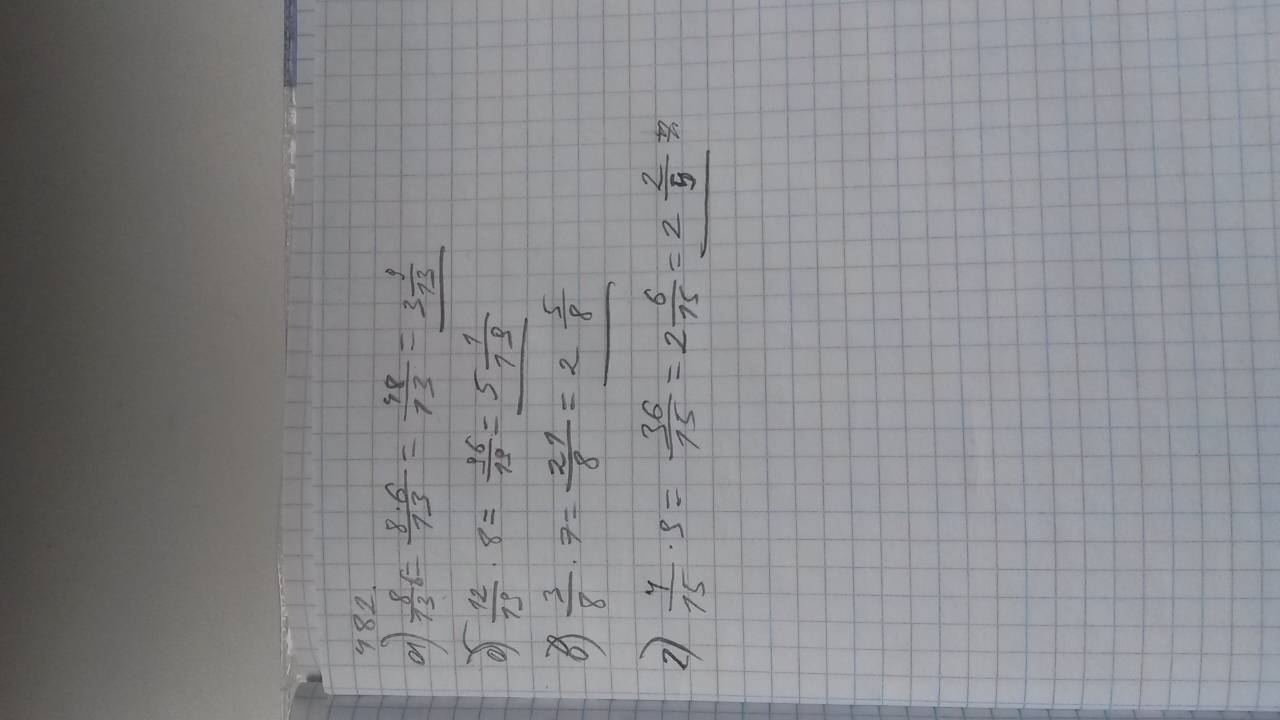 482.
а) 8/13 · 6 = 8·6/13 = 48/13 = 3 9/13
б) 12/19 · 8 = 96/19 = 5 1/19
в) 3/8 · 7 = 21/8 = 2 5/8
г) 4/15 · 9 = 36/15 = 2 6/15 = 2 2/5